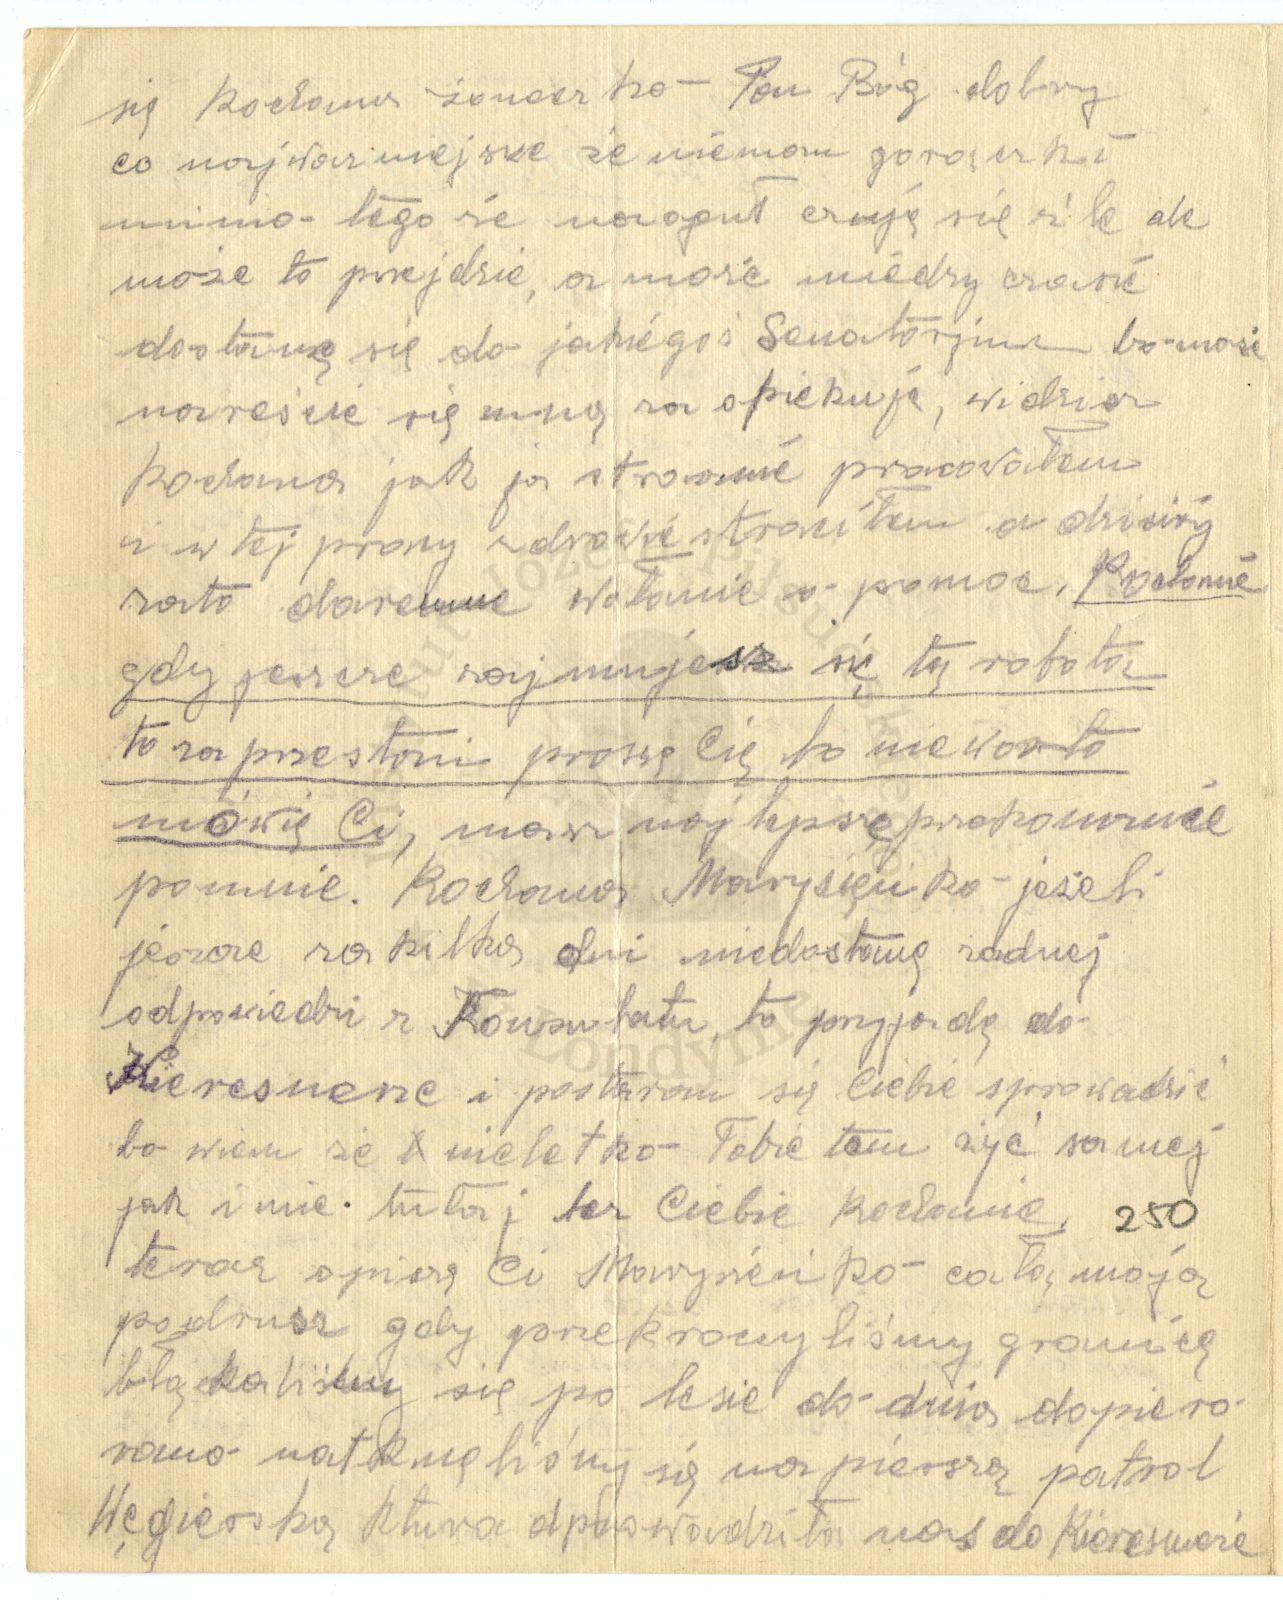 się kochana żoneczko Pan Bóg dobry
co najwarzniejsze że niemam gorączki
mimo tego że naoguł czuję się źle ale
może to przejdzie, a może miedzy czasie
dostanę się do jakiegoś Senatorjum bo może
nareście się mną za opiekują, widzisz
kochana jak ja strasznie pracowałem
i w tej pracy zdrowie straciłem a dzisiaj
zato daremne wołanie o pomoc, Kochanie
gdy jeszcze zajmujesz się tą robotą
to zaprzestań proszę Cię bo niewarto
mówię Ci, masz najlepsze przekonanie
pomnie. Kochana Marysieńko jeżeli
jeszcze za kilka dni niedostanę żadnej
odpowiedzi z Konzulatu, to przyjadę do
Kieresmeze i postaram się Ciebie sprowadzić
bo wiem że nieletko Tobie tam żyć samej
jak i mie tutaj bez Ciebie kochanie,
250
teraz opiszę Ci Marysieńko całą moją
podrusz gdy przekroczyliśmy granicę
błąkaliśmy się po lesie do dnia dopiero
rano natknęliśmy się na pierszą patrol
Węgierską ktura odprowadziła nas do Kieresmeźe
Instytut Józefa Piłsudskiego
w Londynie